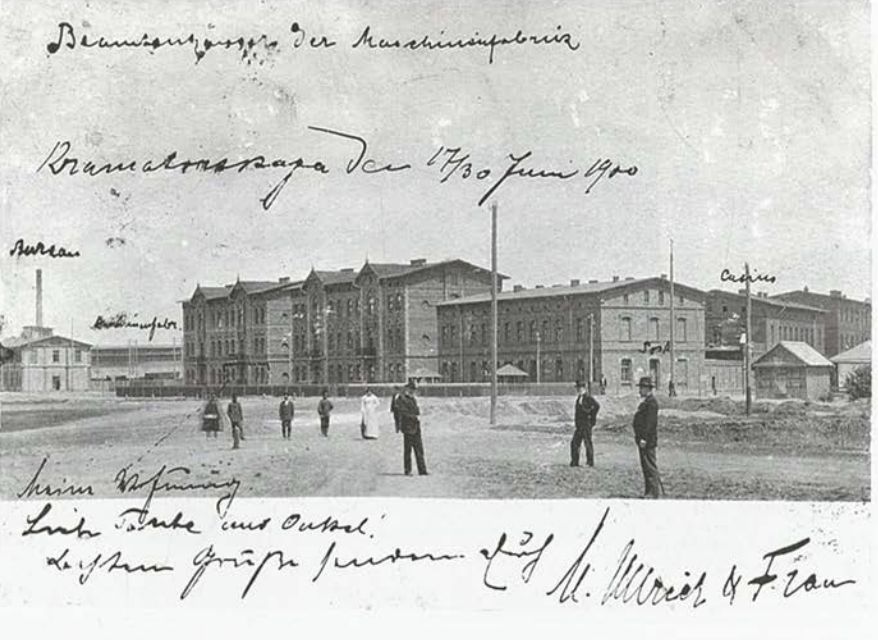 Beamtenhäuser der Maschinenfabrik
Kramatorskaja den 17/30 Juni 1900
Bureau
Casino
Maschinenfabr.
Post
Meine Wohnung.
Liebe Tante und Onkel!
Grüße senden Euch
M. Ullrich & Frau